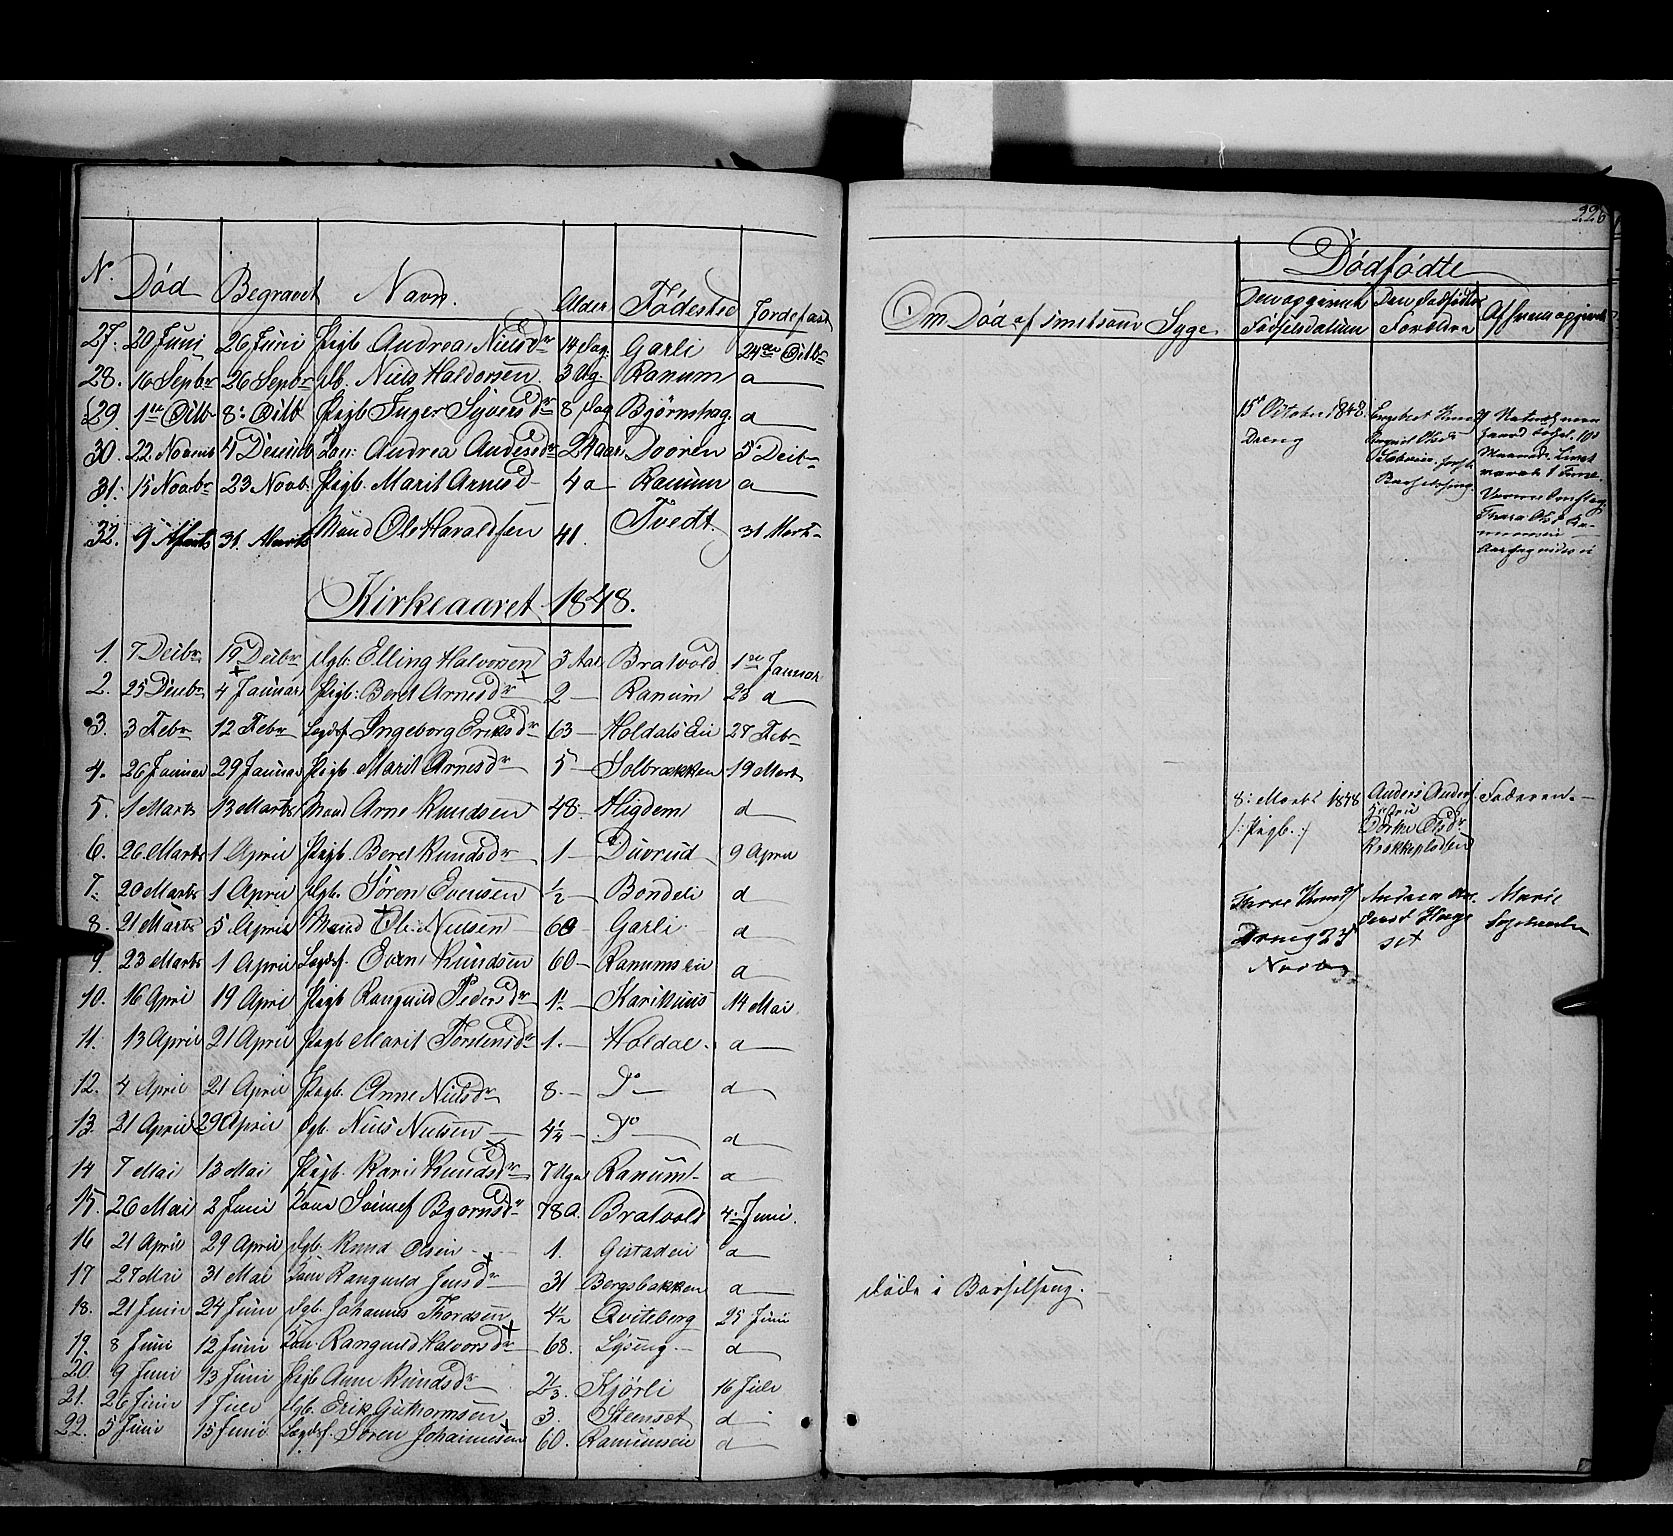 226
N. Død Begravet Navn. Alder Fødested Jordefæst
27. 20 Juni 26 Juni Pigb. Andrea Nielsdr 14 Dag. Garli 24de Octbr
28. 16 Sepbr 26 Sepbr Db. Niels Haldorsen 3 Ug. Ranum a
29. 1ste Octb 8: Octb Pigb. Inger Syversdr 8 Dag Bjørnshag. a
30. 22 Novemb 4 Decemb Kon: Andrea Andersdr 24 aar Dooren 5 Decbr
31. 15 Novbr 23 Novb. Pigb. Marit Arnesd 4 a Ranum a
32. 9 Marts 31. Marts Mand Ole Haraldsen 41. Tvedt. 31 Marts
Kirkeaaret 1848.
1. 7 Decbr 19 Decbr Dgb. Elling Halvorsen 3 Aar Bratvold 1ste Januar
2. 25 Decbr 4 Januar Pigb: Beret Arnesdr 2 — Ranum 23 a
3. 3 Febr 12 Febr Lægdsf. Ingeborg Eriksdr 63 — Holdals Eie 27 Febr
4. 26 Januar 29 Januar Pigb. Marit Arnesdr 5 — Solbrækken 19 Marts
5. 1 Marts 13 Marts Mand Arne Knudsen 48 — Higdem d
6. 26 Marts 1 April Pigb. Beret Knudsdr 1 — Duvrud 9 April
7. 20 Marts 1 April Dgb. Søren Evensen ½ — Bondeli d
8. 21 Marts 5 April Mand Ole Nielsen 60 — Garli d
9. 23 Marts 1 April Lægdsf. Even Knudsen 60 — Ranumseie a
10. 16 April 19 April Pigb. Rangnild Pedersdr Karihuus 14 Mai
11. 13 April 21 April Pigb Marit Torstensdr 1. — Holdal. d
12. 4 April 21 April Pigb. Anne Nielsdr 8. — Do — d
13. 21 April 29 April Dgb. Niels Nielsen 4½ — Do — d
14 7 Mai 13 Mai Pigb. Kari Knudsdr 7 Uger Ranum a
15. 26 Mai 2 Juni Kone Bjørnsdr 78 a. Bratvold 4. Juni.
16 21 April 29 April Dgb. Knud Olsen 1. a
17 27 Mai 31 Mai Kone Rangnild Jensdr 31 Bergsbakken a
18. 21 Juni 24 Juni Dgb. Johannes Thordsen 4½ Qviteberg 25 Juni
19. 8 Juni 12 Juni Kone Rangnild Halvorsdr 68. Lyseng d
20 9 Juni 13 Juni Pigb Anne Knudsdr Kjørli 16 Juli
21. 26 Juni 1 Juli Dgb. Erik Guthormsen 3. Steensæt d
22. 5 Juni 15 Juni Lægdsf. Søren Johannesen 60. Ranumseie d
Om Død af smitsom Syge
døde i Barselseng.
Dødfødte
Den opgivne Fødselsdatum Den Dødfødtes Forældre Af hvem opgivet
15de October 1848.
Dreng
8: Marts 1848
/: Pigb. :/
Anders Anders
Olsdr
Faderen. —
Dreng 23
Novbr